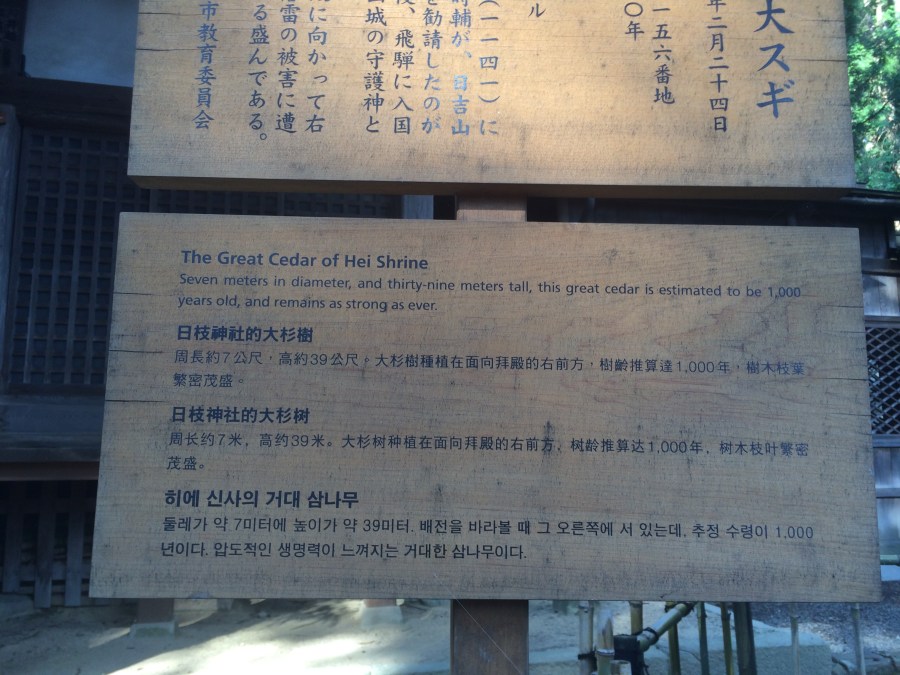 大スギ
年二月二十四日
一五六番地
〇年
ル
(一一四一)に
時輔が、日吉山
を勧請したのが
後、飛騨に入国
城の守護神と
に向かって右
雷の被害に遭
る盛んである。
市教育委員会
The Great Cedar of Hei Shrine
Seven meters in diameter, and thirty-nine meters tall, this great cedar is estimated to be 1,000
years old, and remains as strong as ever.
日枝神社的大杉樹
周長約7公尺，高約39公尺。大杉樹種植在面向拜殿的右前方，樹齡推算達1,000年，樹木枝葉
繁密茂盛。
日枝神社的大杉树
周长约7米，高约39米。大杉树种植在面向拜殿的右前方，树龄推算达1,000年，树木枝叶繁密
茂盛。
히에 신사의 거대 삼나무
둘레가 약 7미터에 높이가 약 39미터. 배전을 바라볼 때 그 오른쪽에 서 있는데, 추정 수령이 1,000
년이다. 압도적인 생명력이 느껴지는 거대한 삼나무이다.